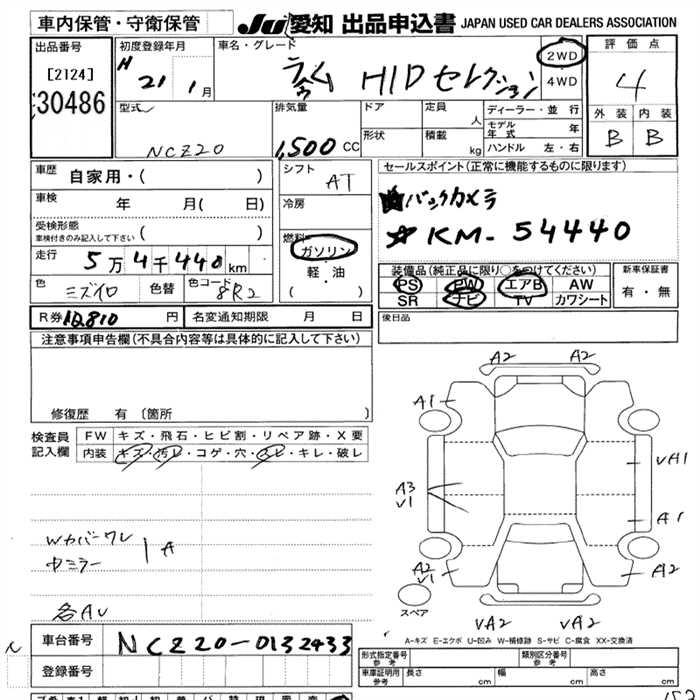 車内保管・守衛保管
JU 愛知 出品申込書 JAPAN USED CAR DEALERS ASSOCIATION
出品番号
[2124]
30486
初度登録年月
H 21 1月
車名・グレード
ラウム HIDセレクション
2WD
4WD
評価点
4
外装 内装
B B
型式
NCZ20
排気量
1,500 CC
ドア
形状
定員 人
積載 kg
ディーラー・並行
モデル年式 年
ハンドル 左・右
車歴 自家用・( )
車検 年 月( 日)
受検形態
車検付きのみ記入して下さい ( )
走行 5万4千440km
色 ミズイロ 色替 色コード 8R2
シフト AT
冷房
燃料
ガソリン
軽・油
( )
セールスポイント(正常に機能するものに限ります)
★バックカメラ
★KM- 54440
装備品(純正品に限り○をつけてください)
PS PW エアB AW
SR ナビ TV カワシート
新車保証書
有・無
R券 12,810 円 名変通知期限 月 日
後日品
注意事項申告欄(不具合内容等は具体的に記入して下さい)
修復歴 有 〔箇所 〕
検査員記入欄
FW キズ・飛石・ヒビ割・リペア跡・X要
内装 キズ・汚レ・コゲ・穴・スレ・キレ・破レ
Wカバーワレ
中ミラー
A
各AU
A2 A2
A1
VA1
A3
V1
A1
A2
V1
A2
スペア
VA2 VA2
A-キズ E-エクボ U-凹み W-補修跡 S-サビ C-腐食 XX-交換済
車台番号 NCZ20-0132433
登録番号
形式指定番号 参考
類別区分番号 参考
車庫証明用 参考 長さ cm 幅 cm 高さ cm